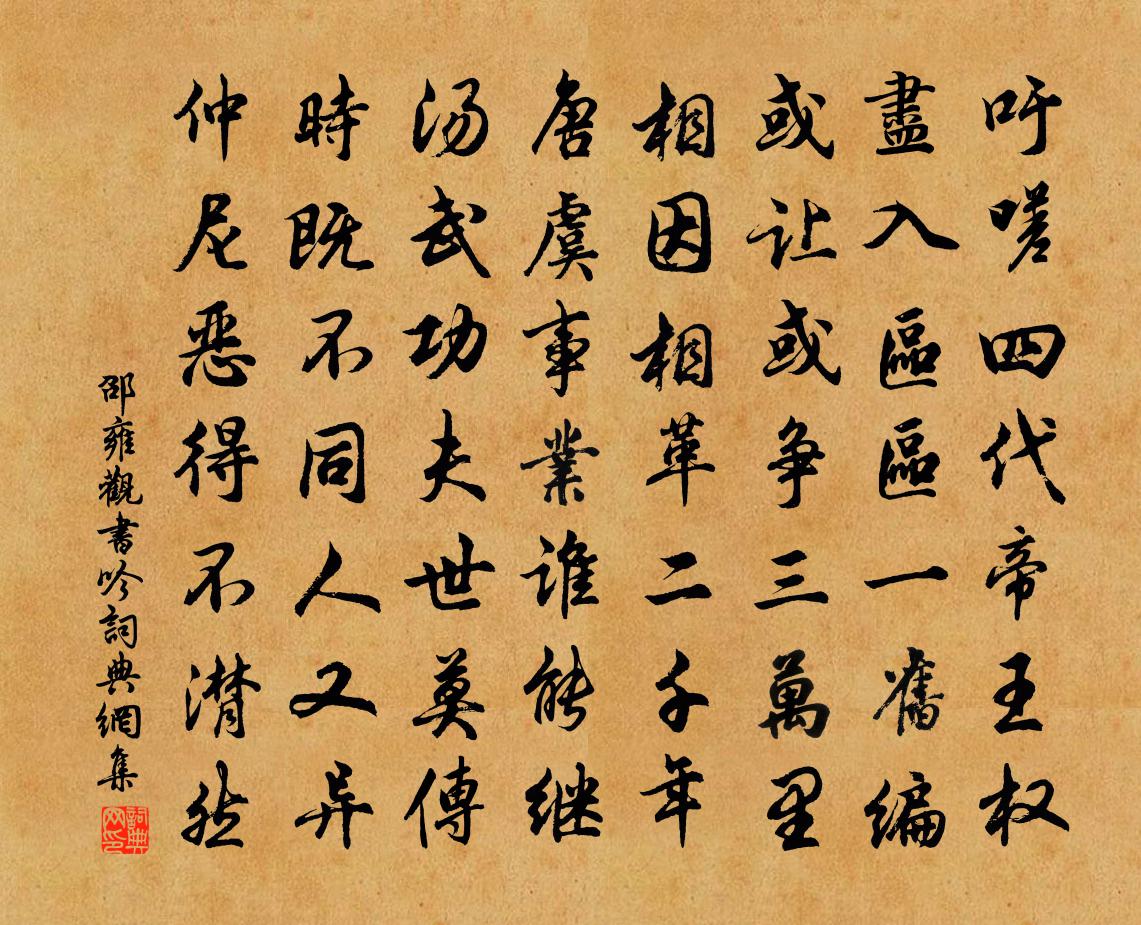 吁嗟四代帝王权
盡入區區一舊编
或让或争三萬里
相因相革二千年
唐虞事業谁能继
汤武功夫世莫傳
時既不同人又异
仲尼恶得不潸然
邵雍觀書吟詞典網集
詞典网印